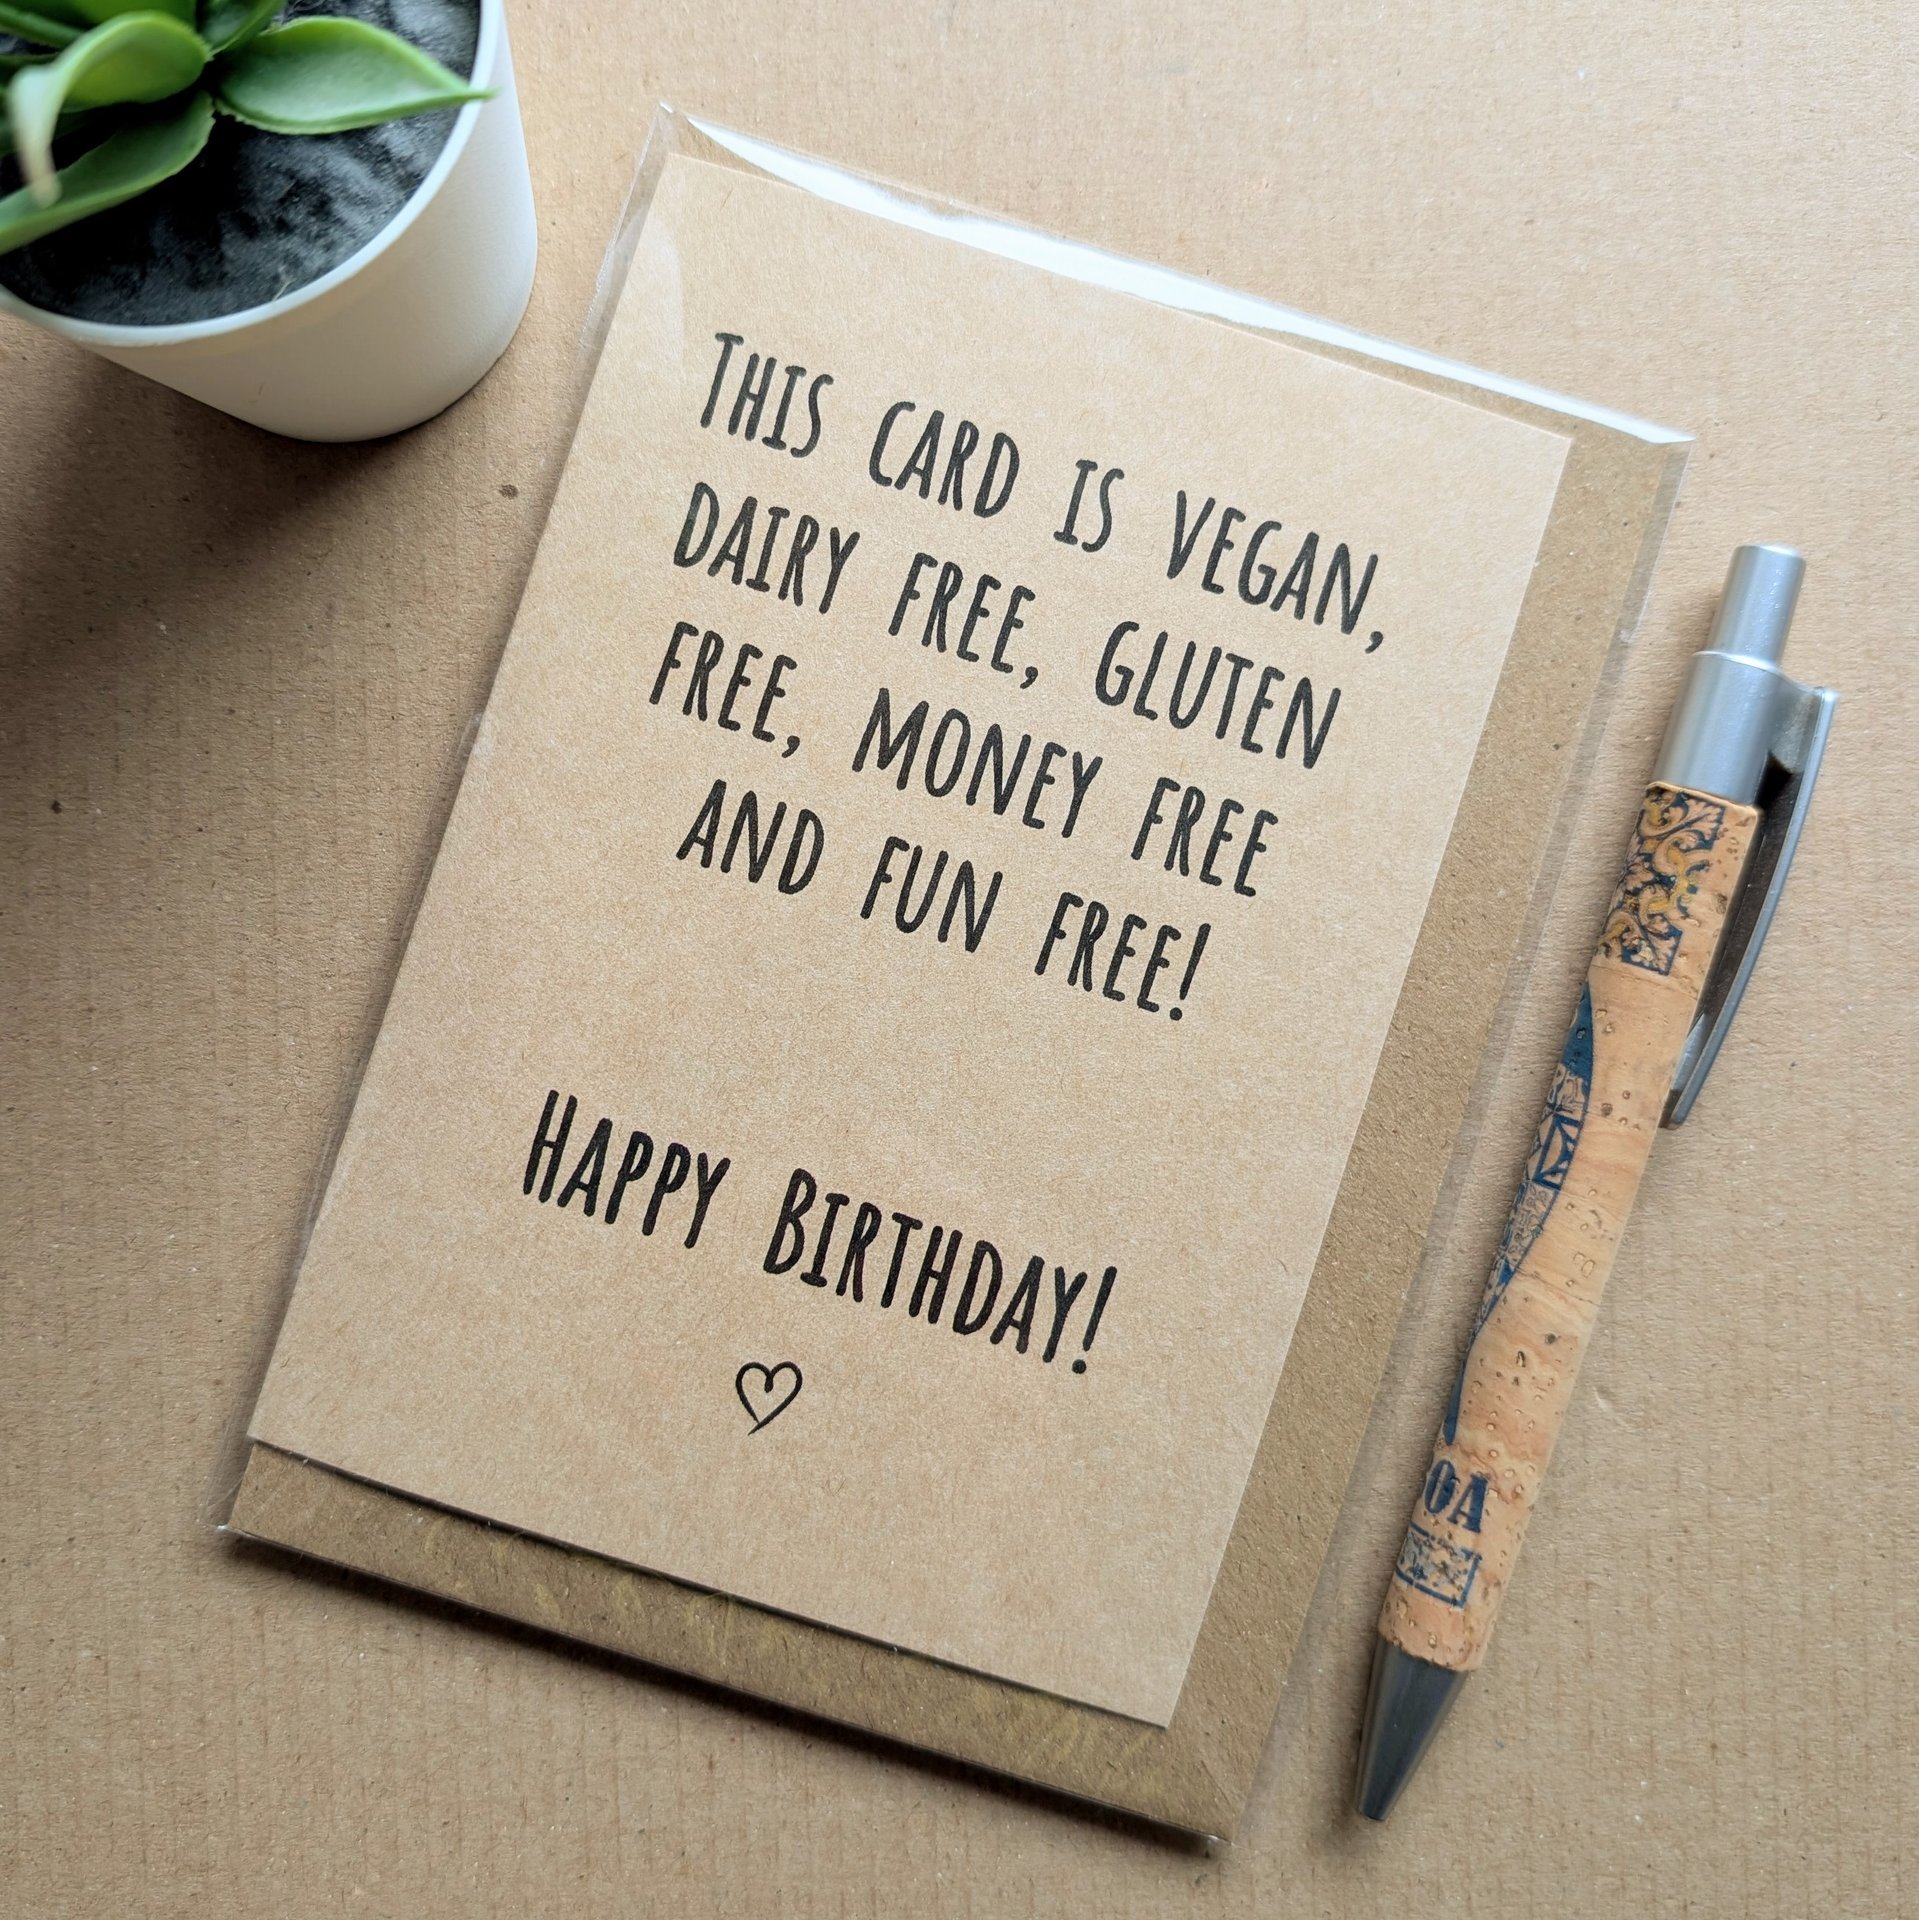 This card is vegan,
dairy free, gluten
free, money free
and fun free!
Happy Birthday!
OA